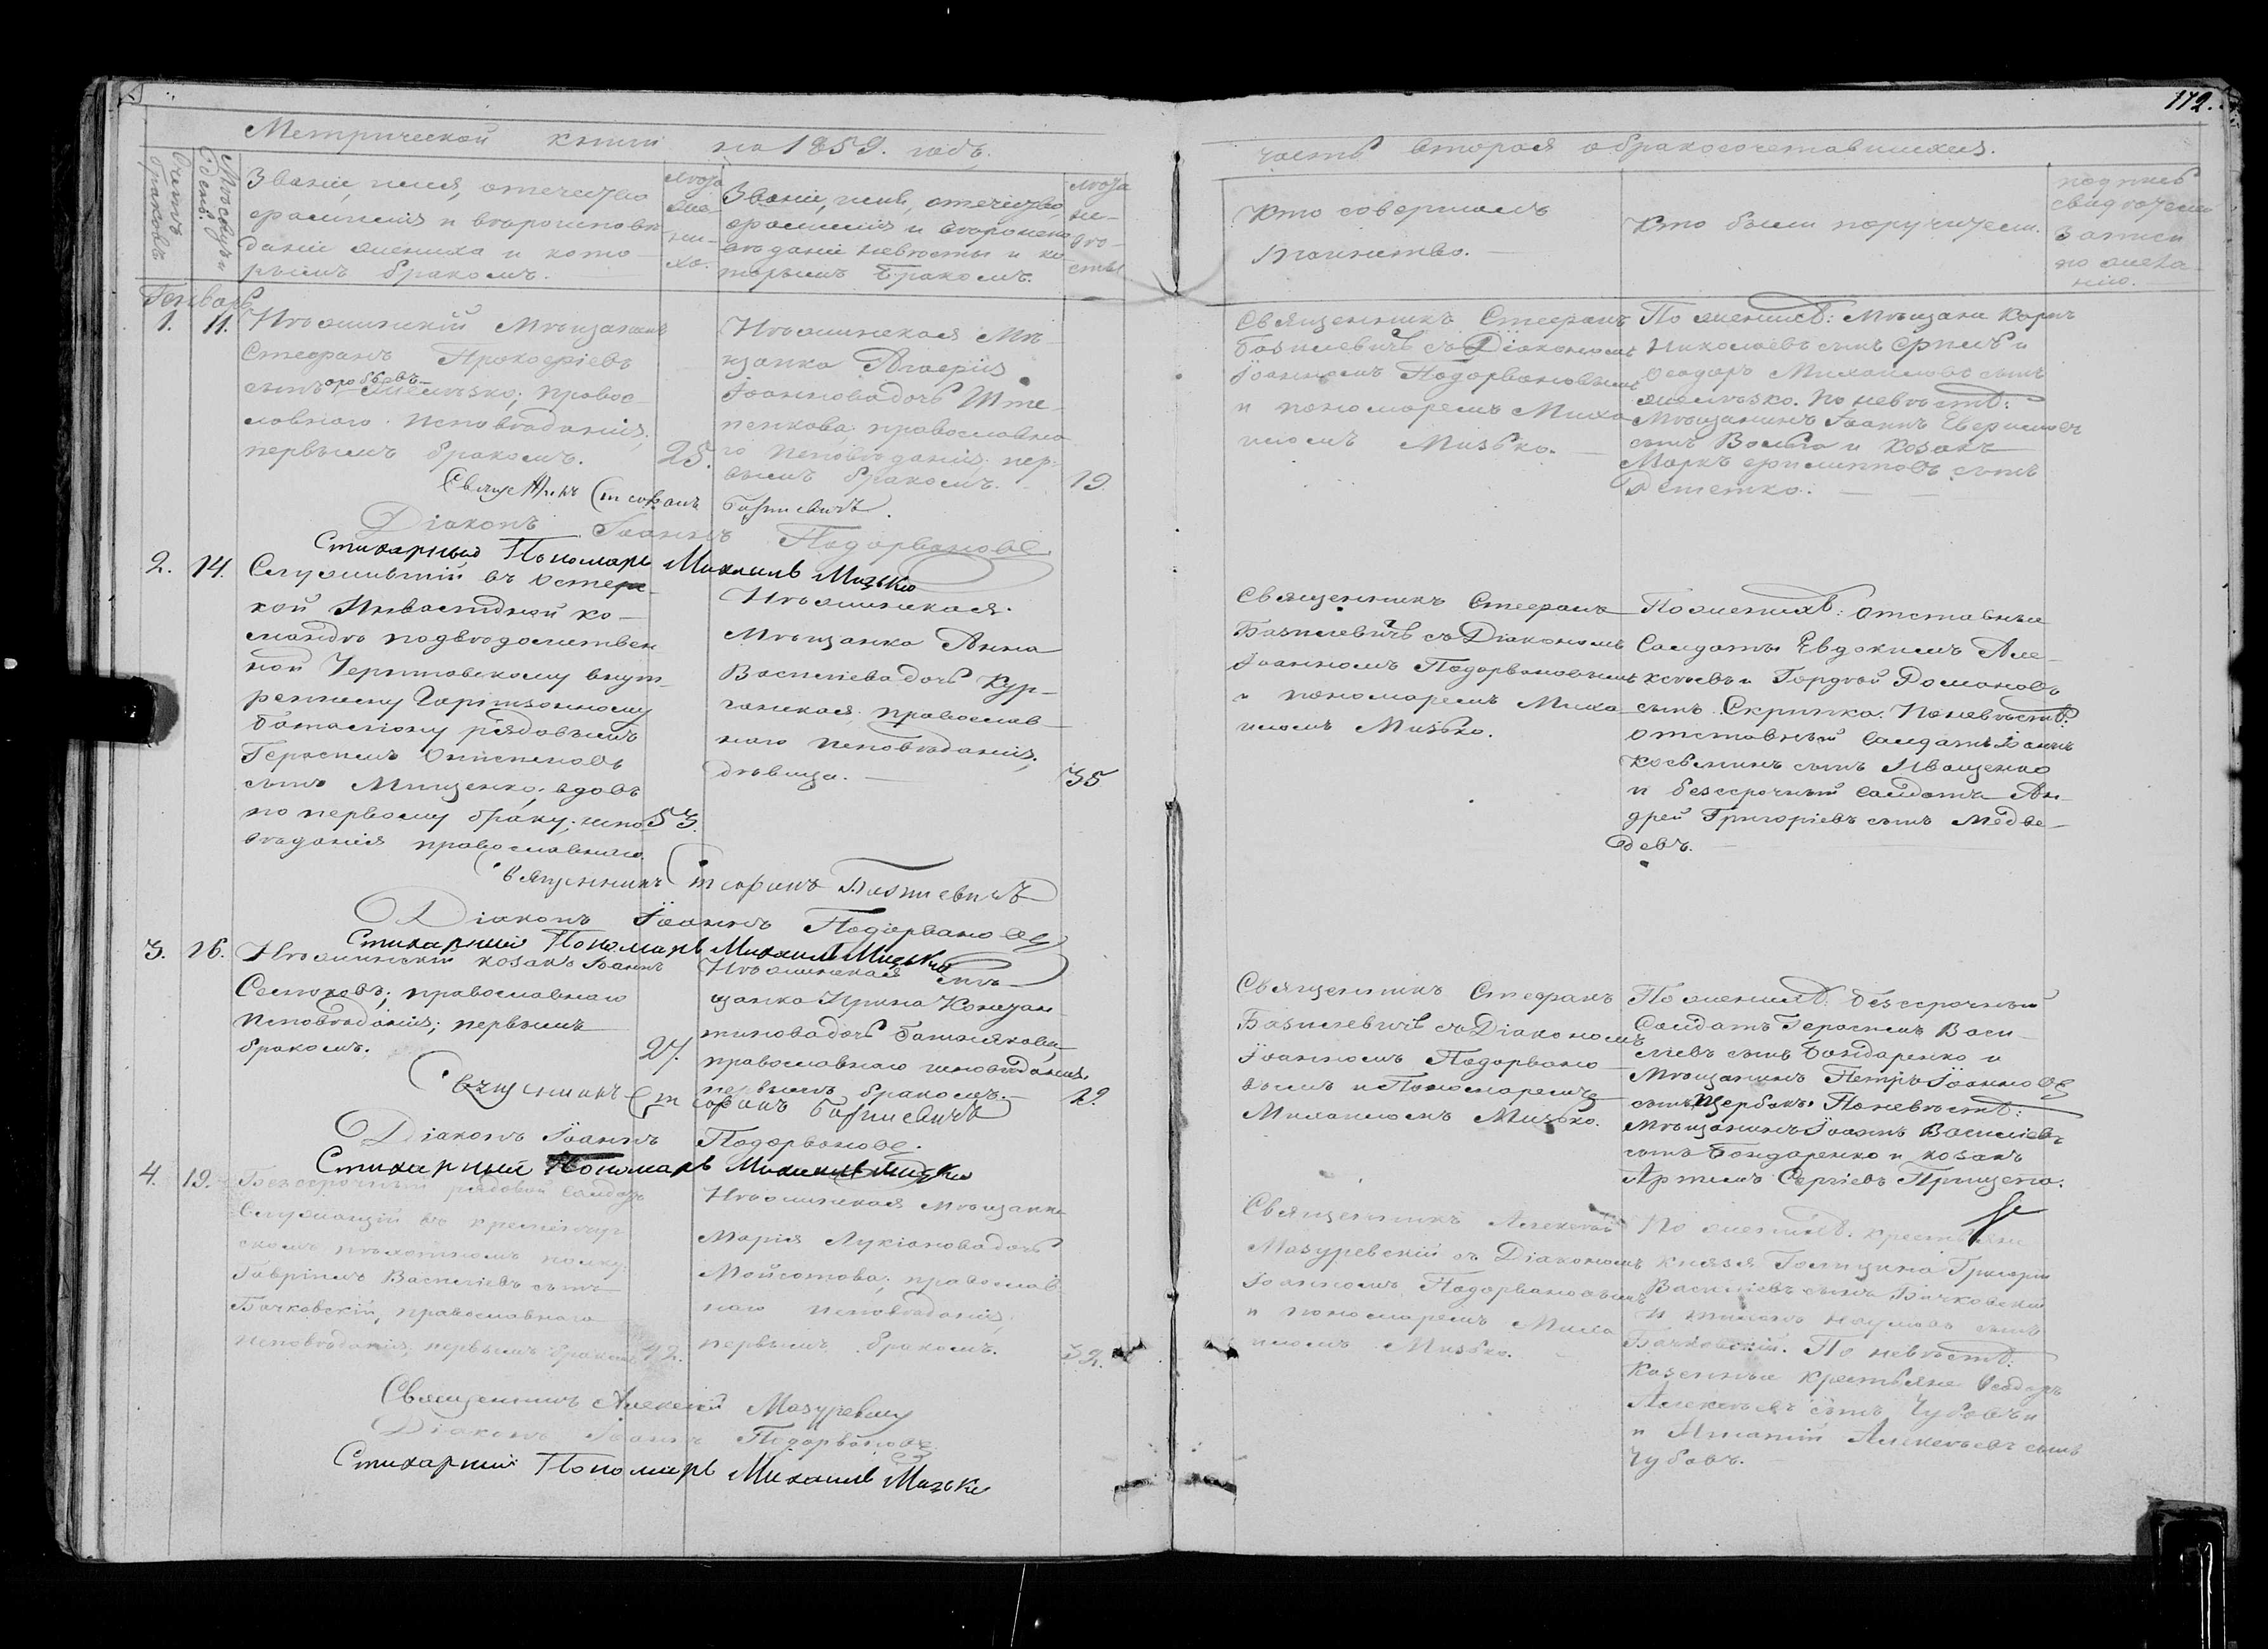 112.
Метрической книги на 1859. годъ.
часть вторая о бракосочетавшихся.
Счетъ браковъ
Мѣсяцъ и день.
Званіе, имя, отечество
фамилія и вѣроисповѣ-
даніе жениха и кото-
рымъ бракомъ.
лѣта
же-
ни-
ха.
Званіе, имя, отечество,
фамилія и вѣроиспо
вѣданіе невѣсты и ко-
торымъ бракомъ.
лѣта
не-
вѣ-
сты
Кто совершалъ
таинство.
Кто были поручители.
подпись
свидѣтелей
записи
по жела-
нію.
Генварь
1. 11.
Нѣжинскій Мѣщанинъ
Стефанъ Прокофіевъ
сынъ
православнаго исповѣданія,
первымъ бракомъ.
25.
Нѣжинская Мѣ-
щанка
Іоаннова дочь
православна
го исповѣданія, пер-
вымъ бракомъ.
19.
Священникъ Стефанъ
Базилевичъ съ Діакономъ
Іоанномъ Подорвановымъ
и пономаремъ Миха
иломъ Мизько.
По женихѣ: Мѣщане Карпъ
Николаевъ сынъ и
Ѳеодоръ Михайловъ сынъ
По невѣстѣ:
Мѣщанинъ Іоаннъ
сынъ и Козакъ
Маркъ Филипповъ сынъ
Священникъ Стефанъ Базилевичъ.
Діаконъ Іоаннъ Подорвановъ
Стихарный Пономарь Михаилъ Мизько
2. 14.
Служившій въ Остер-
кой Инвалидной ко-
мандѣ подвѣдомствен
ной Черниговскому внут-
реннему Гарнизонному
баталіону рядовымъ
Герасимъ
сынъ Мищенко, вдовъ
по первому браку, испо
вѣданія православнаго.
53.
Нѣжинская
Мѣщанка Анна
Василіева дочь Кур-
ганская православ-
наго исповѣданія,
дѣвица.
35
Священникъ Стефанъ
Базилевичъ съ Діакономъ
Іоанномъ Подорвановымъ
и пономаремъ Миха
иломъ Мизько.
По женихѣ: отставные
Солдаты Евдокимъ Але-
ксѣевъ и Гордѣй Романовъ
сынъ Скрипка. По невѣстѣ:
отставный Солдатъ Іоаннъ
Косьминъ сынъ Иващенко
и безсрочный Солдатъ Ан-
дрей Григоріевъ сынъ Медве-
девъ.
Священникъ Стефанъ Базилевичъ
Діаконъ Іоаннъ Подорвановъ
Стихарный Пономарь Михаилъ Мизько
3. 16.
Нѣжинскій козакъ Іоаннъ
православнаго
исповѣданія; первымъ
бракомъ.
27.
Нѣжинская Мѣ-
щанка Ирина Констан-
тинова дочь
православнаго исповѣданія
первымъ бракомъ.
Священникъ Стефанъ
Базилевичъ съ Діакономъ
Іоанномъ Подорвано
вымъ и Пономаремъ
Михаиломъ Мизько.
По женихѣ: безсрочный
Солдатъ Герасимъ Васи-
ліевъ сынъ Бондаренко и
Мѣщанинъ Петръ Іоанновъ
сынъ Щербакъ. По невѣстѣ:
Мѣщанинъ Іоаннъ Василіевъ
сынъ Бондаренко и козакъ
Артемъ Сергіевъ Прищепа.
Священникъ Стефанъ Базилевичъ
Діаконъ Іоаннъ Подорвановъ.
Стихарный Пономарь Михаилъ Мизько
4. 19.
Безсрочный рядовой Солдатъ
Служащій въ кременчуг
скомъ пѣхотномъ полку:
Гавріилъ Василіевъ сынъ
Бачковскій, православнаго
исповѣданія, первымъ бракомъ
42.
Нѣжинская мѣщанка
Марія Лукіанова дочь
православ
наго исповѣданія,
первымъ бракомъ.
32.
Священникъ Алексѣй
Мазуревскій съ Діакономъ
Іоанномъ Подорвановымъ
и пономаремъ Миха
иломъ Мизько.
По женихѣ: крестьяне
князя Голицина Григорій
Василіевъ сынъ Бачковскій
и Наумовъ сынъ
Бачковскій. По невѣстѣ:
Казенные крестьяне Ѳеодоръ
Алексѣевъ сынъ Чубовъ
и Игнатій Алексѣевъ сынъ
Чубовъ.
Священникъ Алексѣй Мазуревскій
Діаконъ Іоаннъ Подорвановъ
Стихарный Пономарь Михаилъ Мизько